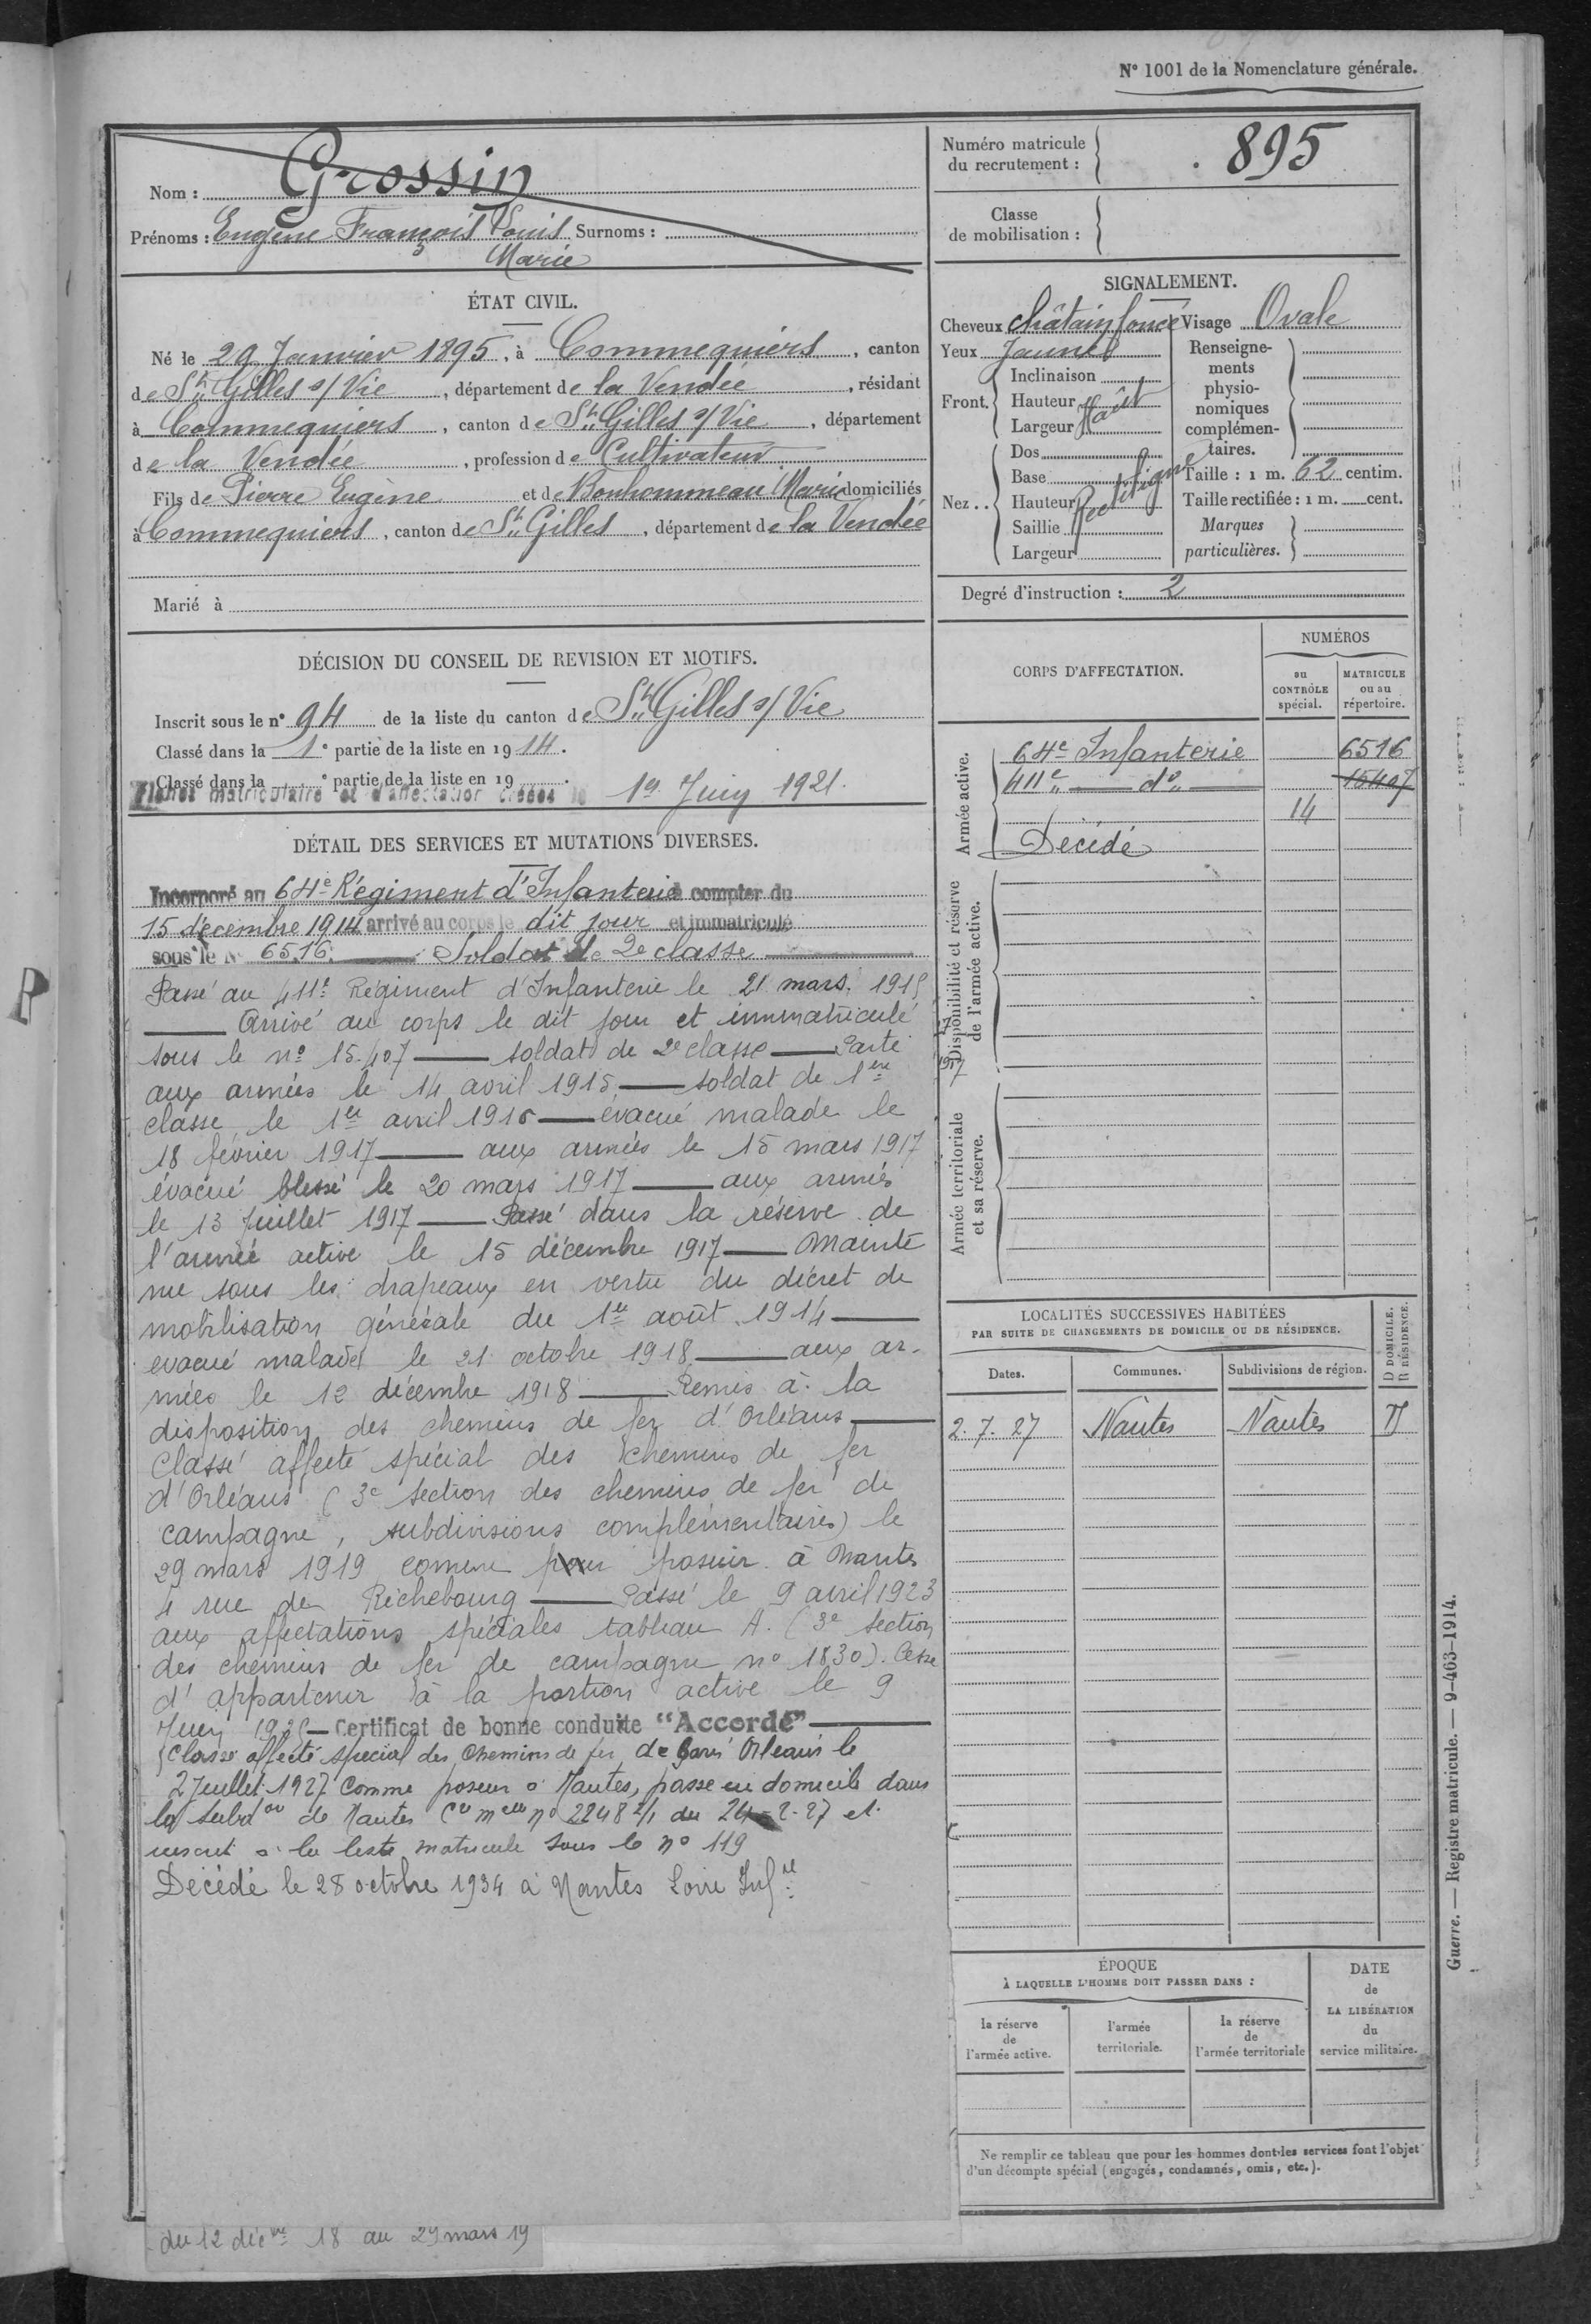 N° 1001 de la Nomenclature générale.
Nom : Grossin
Prénoms : Eugène François Louis Surnoms :
Marie
ÉTAT CIVIL.
Né le 29 Janvier 1895, à Commequiers, canton
de St Gilles s/ Vie, département de la Vendée, résidant
à Commequiers, canton de St Gilles s/ Vie, département
de la Vendée, profession de Cultivateur
Fils de Pierre Eugène et de Bonhommeau Marie domiciliés
à Commequiers, canton de St Gilles, département de la Vendée
Marié à
DÉCISION DU CONSEIL DE REVISION ET MOTIFS.
Inscrit sous le n° 94 de la liste du canton de St Gilles s/ Vie
Classé dans la 1e partie de la liste en 1914.
Classé dans la e partie de la liste en 19 .
Fiches matriculaire et d'affectation créées le 19 Juin 1921.
DÉTAIL DES SERVICES ET MUTATIONS DIVERSES.
Incorporé au 64e Régiment d'Infanterie à compter du
15 décembre 1914 arrivé au corps le dit jour et immatriculé
sous le No 6516. Soldat de 2e classe
Passé au 411e Régiment d'Infanterie le 21 mars 1915
Arrivé au corps le dit jour et immatriculé
sous le no 15.407 — soldat de 2e classe — Parti
aux armées le 14 avril 1915 — soldat de 1ère
classe le 1er avril 1916 — évacué malade le
18 février 1917 — aux armées le 15 mars 1917
évacué blessé le 20 mars 1917 — aux armées
le 13 juillet 1917 — Passé dans la réserve de
l'armée active le 15 décembre 1917 — Mainte
nu sous les drapeaux en vertu du décret de
mobilisation générale du 1er août 1914 —
évacué malade le 21 octobre 1918 — aux ar-
mées le 12 décembre 1918 — Remis à la
disposition des chemins de fer d'Orléans —
Classé affecté spécial des chemins de fer
d'Orléans (3e section des chemins de fer de
campagne, subdivisions complémentaires) le
29 mars 1919 comme poseur à Nantes
4 rue de Richebourg — Passé le 9 avril 1923
aux affectations spéciales tableau A. (3e section
des chemins de fer de campagne no 1830). Cesse
d'appartenir à la portion active le 9
Juin 1925 — Certificat de bonne conduite "Accordé" —
Classé affecté spécial des Chemins de fer de Paris Orléans le
2 Juillet 1927 comme poseur à Nantes, passe en domicile dans
la subdon de Nantes Cre melle no 22482/1 du 24-2-27 et
inscrit à la liste matricule sous le no 119
Décédé le 28 octobre 1934 à Nantes Loire Infre
du 12 décbre 18 au 29 mars 19
Numéro matricule
du recrutement : 895
Classe
de mobilisation :
SIGNALEMENT.
Cheveux châtain foncé Visage Ovale
Yeux Jaunes
Front. Inclinaison
Hauteur Haut
Largeur
Renseigne-
ments
physio-
nomiques
complémen-
taires.
Nez .. Dos
Base
Hauteur Rectiligne
Saillie
Largeur
Taille : 1 m. 62 centim.
Taille rectifiée : 1 m. cent.
Marques
particulières.
Degré d'instruction : 2
CORPS D'AFFECTATION.
NUMÉROS
au
CONTRÔLE
spécial.
MATRICULE
ou au
répertoire.
Armée active.
64e Infanterie 6516
411e — do — 15407
14
Décédé
Disponibilité et réserve
de l'armée active.
Armée territoriale
et sa réserve.
LOCALITÉS SUCCESSIVES HABITÉES
PAR SUITE DE CHANGEMENTS DE DOMICILE OU DE RÉSIDENCE.
D DOMICILE.
R RÉSIDENCE.
Dates. Communes. Subdivisions de région.
2.7.27 Nantes Nantes D
ÉPOQUE
À LAQUELLE L'HOMME DOIT PASSER DANS :
la réserve
de
l'armée active.
l'armée
territoriale.
la réserve
de
l'armée territoriale
DATE
de
LA LIBÉRATION
du
service militaire.
Ne remplir ce tableau que pour les hommes dont les services font l'objet
d'un décompte spécial (engagés, condamnés, omis, etc.).
Guerre. — Registre matricule. — 9-463-1914.